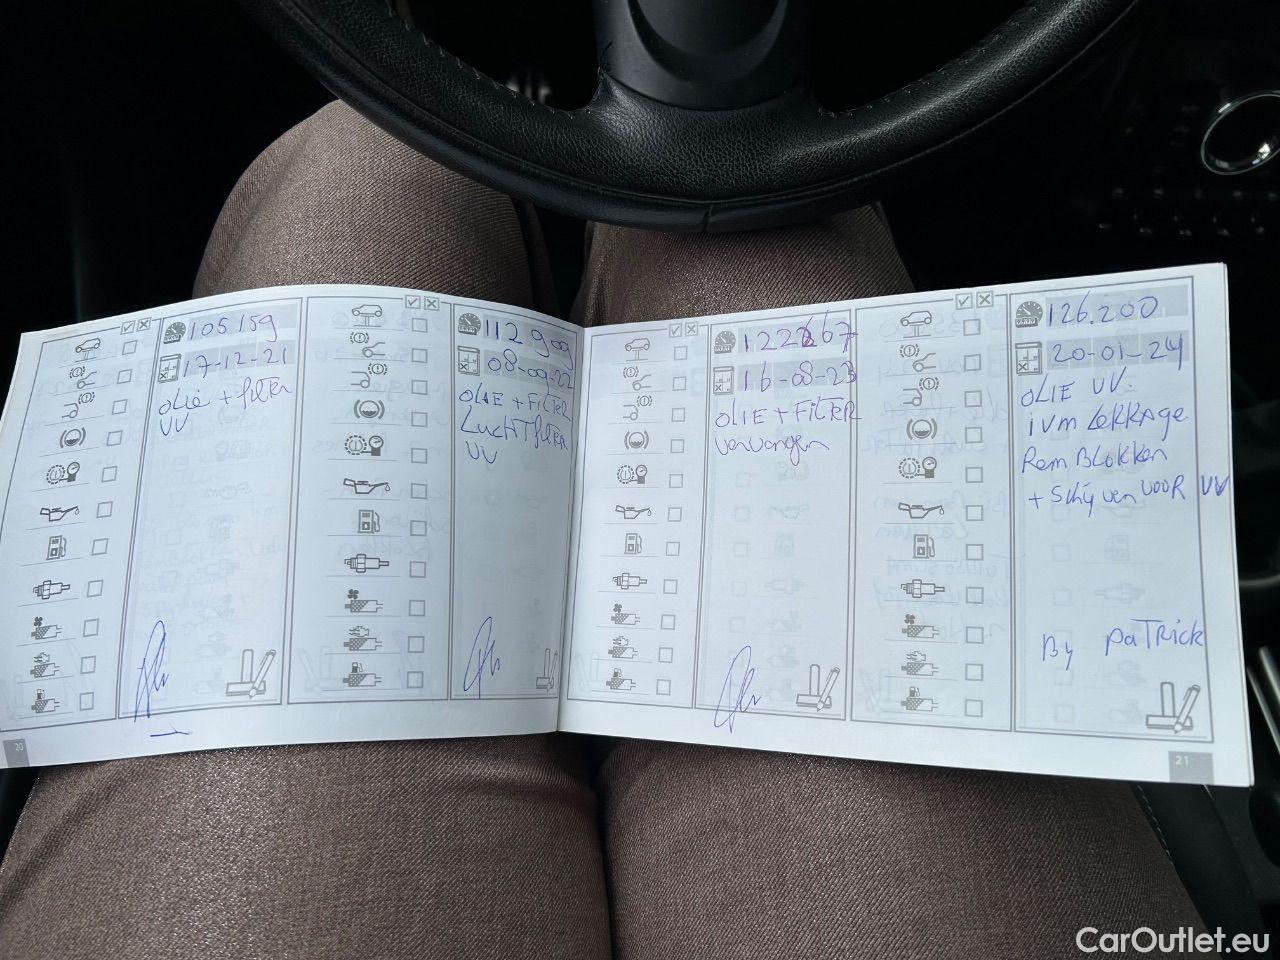 105159
17-12-21
OLIE + FilTER
VV
112909
08-09-22
OLIE + FilTER
LuchTfilTER
VV
122667
16-08-23
OLIE + FilTER
vervangen
126.200
20-01-24
OLIE VV.
ivm LeKKAge
Rem BloKKen
+ Schijven VOOR VV
By PaTRick
20
21
CarOutlet.eu